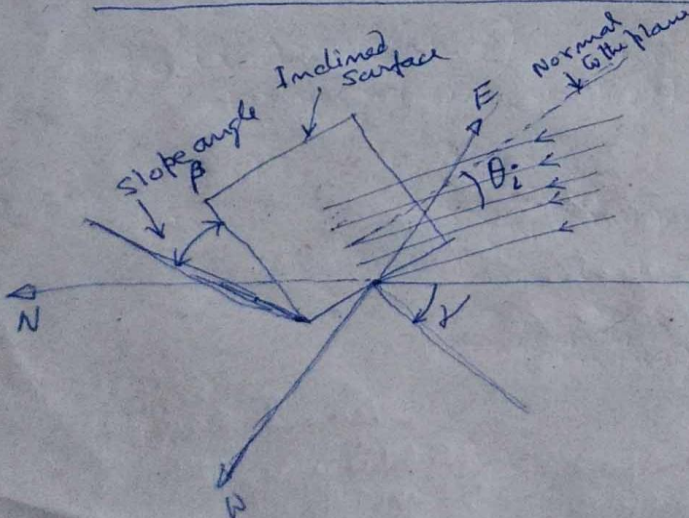 Inclined
surface
Normal
to the plane
E
Slope angle
β
θi
N
γ
W